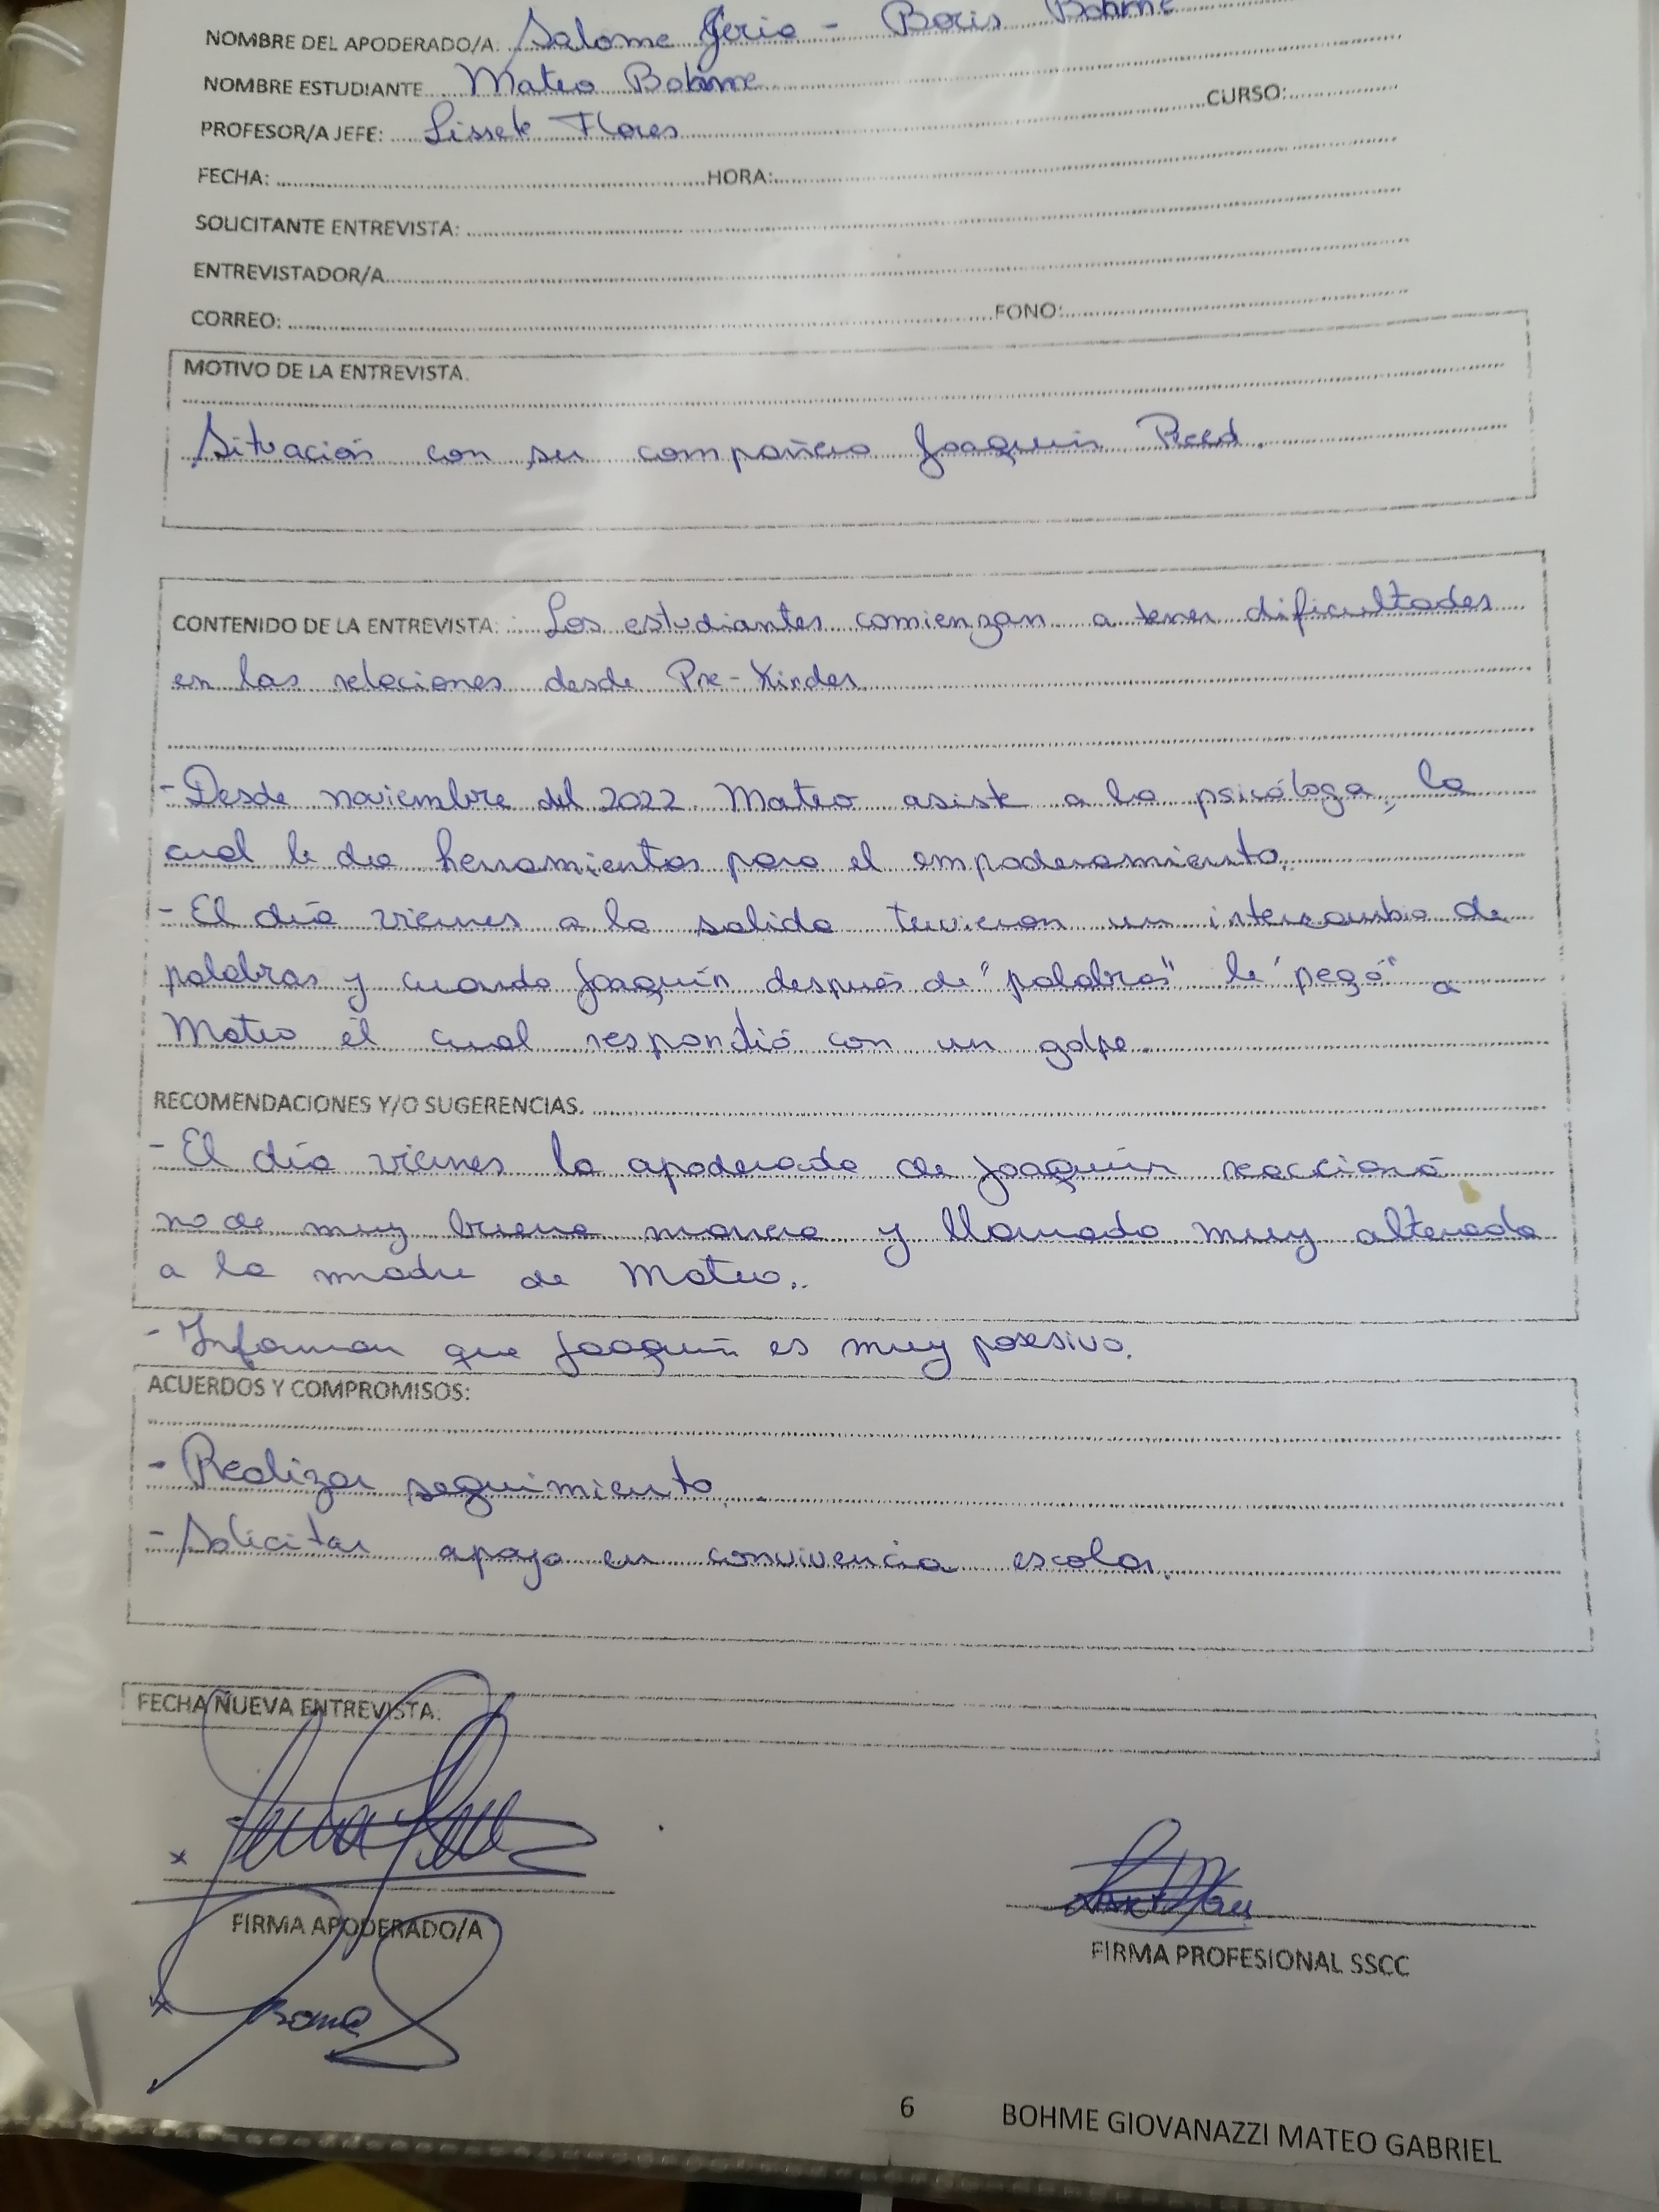 NOMBRE DEL APODERADO/A. Salome Jerio - Boris Bohme
NOMBRE ESTUDIANTE Mateo Bohme
CURSO:
PROFESOR/A JEFE: Lissete Flores
FECHA: HORA:
SOLICITANTE ENTREVISTA:
ENTREVISTADOR/A
CORREO: FONO:
MOTIVO DE LA ENTREVISTA.
Situación con su compañero Joaquín Reed.
CONTENIDO DE LA ENTREVISTA: Los estudiantes comienzan a tener dificultades
en las relaciones desde Pre-Kinder
- Desde noviembre del 2022 Mateo asiste a la psicóloga, la
cual le da herramientas para el empoderamiento.
- El día viernes a la salida tuvieron un intercambio de
palabras y cuando Joaquín después de "palabras" le "pegó" a
Mateo él cual respondió con un golpe.
RECOMENDACIONES Y/O SUGERENCIAS.
- El día viernes la apoderada de Joaquín reaccionó
no de muy buena manera y llamado muy alterada
a la madre de Mateo.
- Informan que Joaquín es muy posesivo.
ACUERDOS Y COMPROMISOS:
- Realizar seguimiento
- Solicitar apoyo en convivencia escolar.
FECHA NUEVA ENTREVISTA.
FIRMA APODERADO/A
FIRMA PROFESIONAL SSCC
6 BOHME GIOVANAZZI MATEO GABRIEL